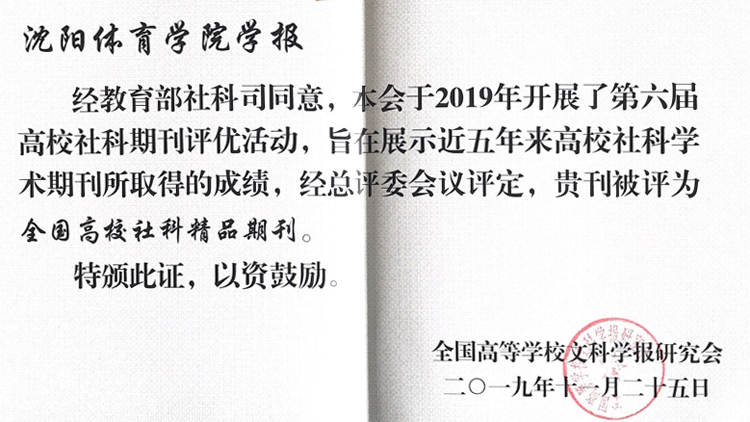 沈阳体育学院学报
经教育部社科司同意，本会于2019年开展了第六届
高校社科期刊评优活动，旨在展示近五年来高校社科学
术期刊所取得的成绩，经总评委会议评定，贵刊被评为
全国高校社科精品期刊。
特颁此证，以资鼓励。
全国高等学校文科学报研究会
二〇一九年十一月二十五日